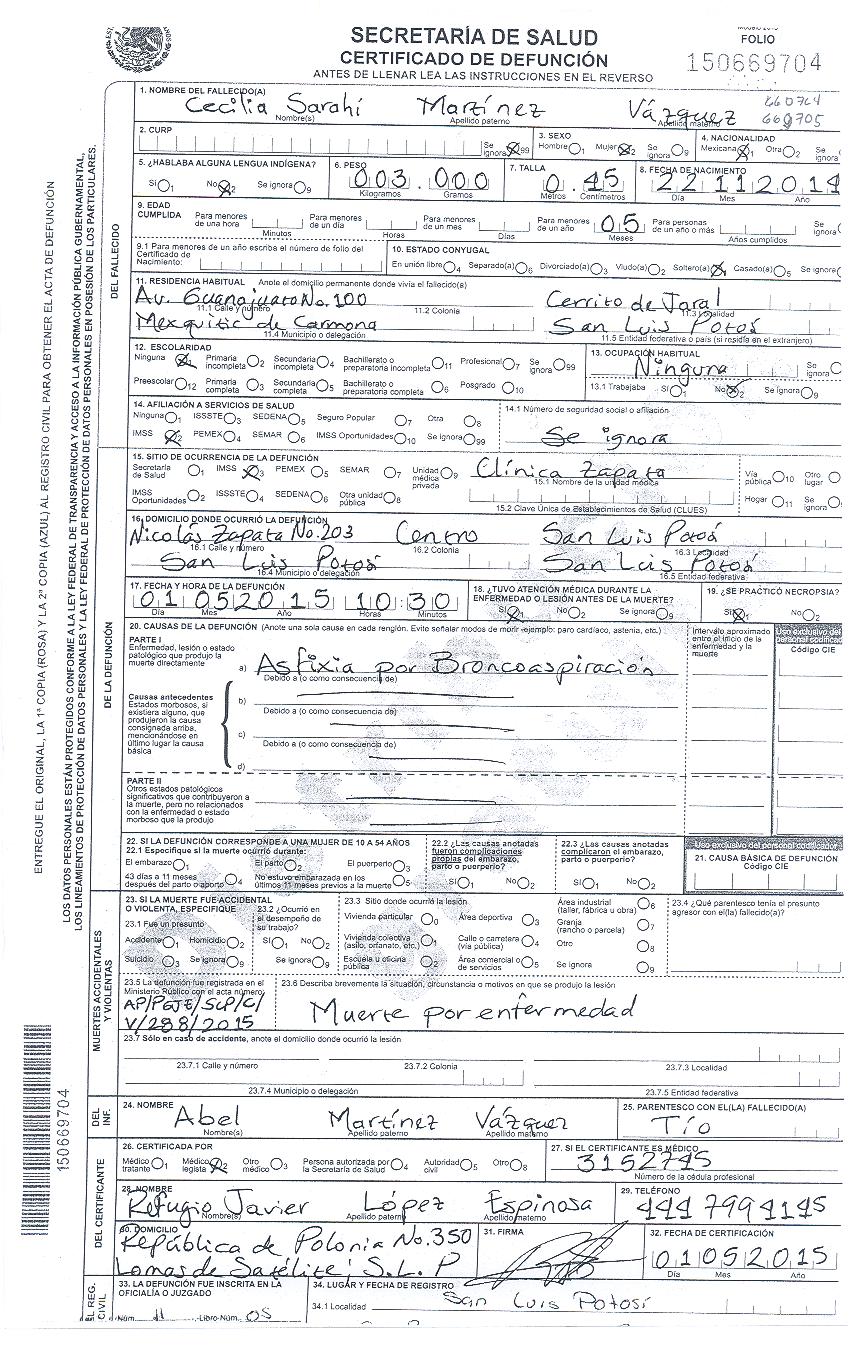 SECRETARÍA DE SALUD
CERTIFICADO DE DEFUNCIÓN
ANTES DE LLENAR LEA LAS INSTRUCCIONES EN EL REVERSO
FOLIO
150669704
660704
660705
ENTREGUE EL ORIGINAL, LA 1ª COPIA (ROSA) Y LA 2ª COPIA (AZUL) AL REGISTRO CIVIL PARA OBTENER EL ACTA DE DEFUNCIÓN
LOS DATOS PERSONALES ESTÁN PROTEGIDOS CONFORME A LA LEY FEDERAL DE TRANSPARENCIA Y ACCESO A LA INFORMACIÓN PÚBLICA GUBERNAMENTAL,
LOS LINEAMIENTOS DE PROTECCIÓN DE DATOS PERSONALES Y LA LEY FEDERAL DE PROTECCIÓN DE DATOS PERSONALES EN POSESIÓN DE LOS PARTICULARES.
150669704
DEL FALLECIDO
1. NOMBRE DEL FALLECIDO(A)
Cecilia Sarahí Martínez Vázquez
Nombre(s) Apellido paterno Apellido materno
2. CURP Se ignora 99 3. SEXO Hombre 1 Mujer 2 Se ignora 9 4. NACIONALIDAD Mexicana 1 Otra 2 Se ignora
5. ¿HABLABA ALGUNA LENGUA INDÍGENA? 6. PESO 7. TALLA 8. FECHA DE NACIMIENTO
Sí 1 No 2 Se ignora 9 003.000 0.45 22 11 2014
Kilogramos Gramos Metros Centímetros Día Mes Año
9. EDAD CUMPLIDA Para menores de una hora Minutos Para menores de un día Horas Para menores de un mes Días Para menores de un año 05 Meses Para personas de un año o más Años cumplidos Se ignora
9.1 Para menores de un año escriba el número de folio del Certificado de Nacimiento:
10. ESTADO CONYUGAL
En unión libre 4 Separado(a) 6 Divorciado(a) 3 Viudo(a) 2 Soltero(a) 1 Casado(a) 5 Se ignora
11. RESIDENCIA HABITUAL Anote el domicilio permanente donde vivía el fallecido(a)
Av. Guanajuato No. 100 Cerrito de Jaral
11.1 Calle y número 11.2 Colonia 11.3 Localidad
Mexquitic de Carmona San Luis Potosí
11.4 Municipio o delegación 11.5 Entidad federativa o país (si residía en el extranjero)
12. ESCOLARIDAD
Ninguna 1 Primaria incompleta 2 Secundaria incompleta 4 Bachillerato o preparatoria incompleta 11 Profesional 7 Se ignora 99
Preescolar 12 Primaria completa 3 Secundaria completa 5 Bachillerato o preparatoria completa 6 Posgrado 10
13. OCUPACIÓN HABITUAL Ninguna Se ignora
13.1 Trabajaba Sí 1 No 2 Se ignora 9
14. AFILIACIÓN A SERVICIOS DE SALUD
Ninguna 1 ISSSTE 3 SEDENA 5 Seguro Popular 7 Otra 8
IMSS 2 PEMEX 4 SEMAR 6 IMSS Oportunidades 10 Se ignora 99
14.1 Número de seguridad social o afiliación
Se ignora
DE LA DEFUNCIÓN
15. SITIO DE OCURRENCIA DE LA DEFUNCIÓN
Secretaría de Salud 1 IMSS 3 PEMEX 5 SEMAR 7 Unidad médica privada 9 Clínica Zapata Vía pública 10 Otro lugar
15.1 Nombre de la unidad médica
IMSS Oportunidades 2 ISSSTE 4 SEDENA 6 Otra unidad pública 8 Hogar 11 Se ignora
15.2 Clave Única de Establecimientos de Salud (CLUES)
16. DOMICILIO DONDE OCURRIÓ LA DEFUNCIÓN
Nicolás Zapata No. 203 Centro San Luis Potosí
16.1 Calle y número 16.2 Colonia 16.3 Localidad
San Luis Potosí San Luis Potosí
16.4 Municipio o delegación 16.5 Entidad federativa
17. FECHA Y HORA DE LA DEFUNCIÓN
01 05 2015 10:30
Día Mes Año Horas Minutos
18. ¿TUVO ATENCIÓN MÉDICA DURANTE LA ENFERMEDAD O LESIÓN ANTES DE LA MUERTE?
Sí 1 No 2 Se ignora 9
19. ¿SE PRACTICÓ NECROPSIA?
Sí 1 No 2
20. CAUSAS DE LA DEFUNCIÓN (Anote una sola causa en cada renglón. Evite señalar modos de morir ejemplo: paro cardíaco, astenia, etc.)
Intervalo aproximado entre el inicio de la enfermedad y la muerte
Uso exclusivo del personal codificador
Código CIE
PARTE I
Enfermedad, lesión o estado patológico que produjo la muerte directamente
a) Asfixia por Broncoaspiración
Debido a (o como consecuencia de)
Causas antecedentes
Estados morbosos, si existiera alguno, que produjeron la causa consignada arriba, mencionándose en último lugar la causa básica
b)
Debido a (o como consecuencia de)
c)
Debido a (o como consecuencia de)
d)
PARTE II
Otros estados patológicos significativos que contribuyeron a la muerte, pero no relacionados con la enfermedad o estado morboso que la produjo
22. SI LA DEFUNCIÓN CORRESPONDE A UNA MUJER DE 10 A 54 AÑOS
22.1 Especifique si la muerte ocurrió durante:
El embarazo 1 El parto 2 El puerperio 3
43 días a 11 meses después del parto o aborto 4 No estuvo embarazada en los últimos 11 meses previos a la muerte 5
22.2 ¿Las causas anotadas fueron complicaciones propias del embarazo, parto o puerperio?
Sí 1 No 2
22.3 ¿Las causas anotadas complicaron el embarazo, parto o puerperio?
Sí 1 No 2
Uso exclusivo del personal codificador
21. CAUSA BÁSICA DE DEFUNCIÓN
Código CIE
MUERTES ACCIDENTALES Y VIOLENTAS
23. SI LA MUERTE FUE ACCIDENTAL O VIOLENTA, ESPECIFIQUE
23.1 Fue un presunto
Accidente 1 Homicidio 2
Suicidio 3 Se ignora 9
23.2 ¿Ocurrió en el desempeño de su trabajo?
Sí 1 No 2
Se ignora 9
23.3 Sitio donde ocurrió la lesión
Vivienda particular 0 Área deportiva 3 Área industrial (taller, fábrica u obra) 6
Vivienda colectiva (asilo, orfanato, etc.) 1 Calle o carretera (vía pública) 4 Granja (rancho o parcela) 7
Escuela u oficina pública 2 Área comercial o de servicios 5 Otro 8
Se ignora 9
23.4 ¿Qué parentesco tenía el presunto agresor con el(la) fallecido(a)?
23.5 La defunción fue registrada en el Ministerio Público con el acta número:
AP/PGJE/SLP/C/
V/288/2015
23.6 Describa brevemente la situación, circunstancia o motivos en que se produjo la lesión
Muerte por enfermedad
23.7 Sólo en caso de accidente, anote el domicilio donde ocurrió la lesión
23.7.1 Calle y número 23.7.2 Colonia 23.7.3 Localidad
23.7.4 Municipio o delegación 23.7.5 Entidad federativa
DEL INF.
24. NOMBRE
Abel Martínez Vázquez
Nombre(s) Apellido paterno Apellido materno
25. PARENTESCO CON EL(LA) FALLECIDO(A)
Tío
DEL CERTIFICANTE
26. CERTIFICADA POR
Médico tratante 1 Médico legista 2 Otro médico 3 Persona autorizada por la Secretaría de Salud 4 Autoridad civil 5 Otro 8
27. SI EL CERTIFICANTE ES MÉDICO
3152745
Número de la cédula profesional
28. NOMBRE
Refugio Javier López Espinosa
Nombre(s) Apellido paterno Apellido materno
29. TELÉFONO
444 799 4145
30. DOMICILIO
República de Polonia No. 350
Lomas de Satélite S.L.P
31. FIRMA
32. FECHA DE CERTIFICACIÓN
01 05 2015
Día Mes Año
EL REG. CIVIL
33. LA DEFUNCIÓN FUE INSCRITA EN LA OFICIALÍA O JUZGADO
Núm. 11 Libro Núm. 05
34. LUGAR Y FECHA DE REGISTRO
34.1 Localidad San Luis Potosí